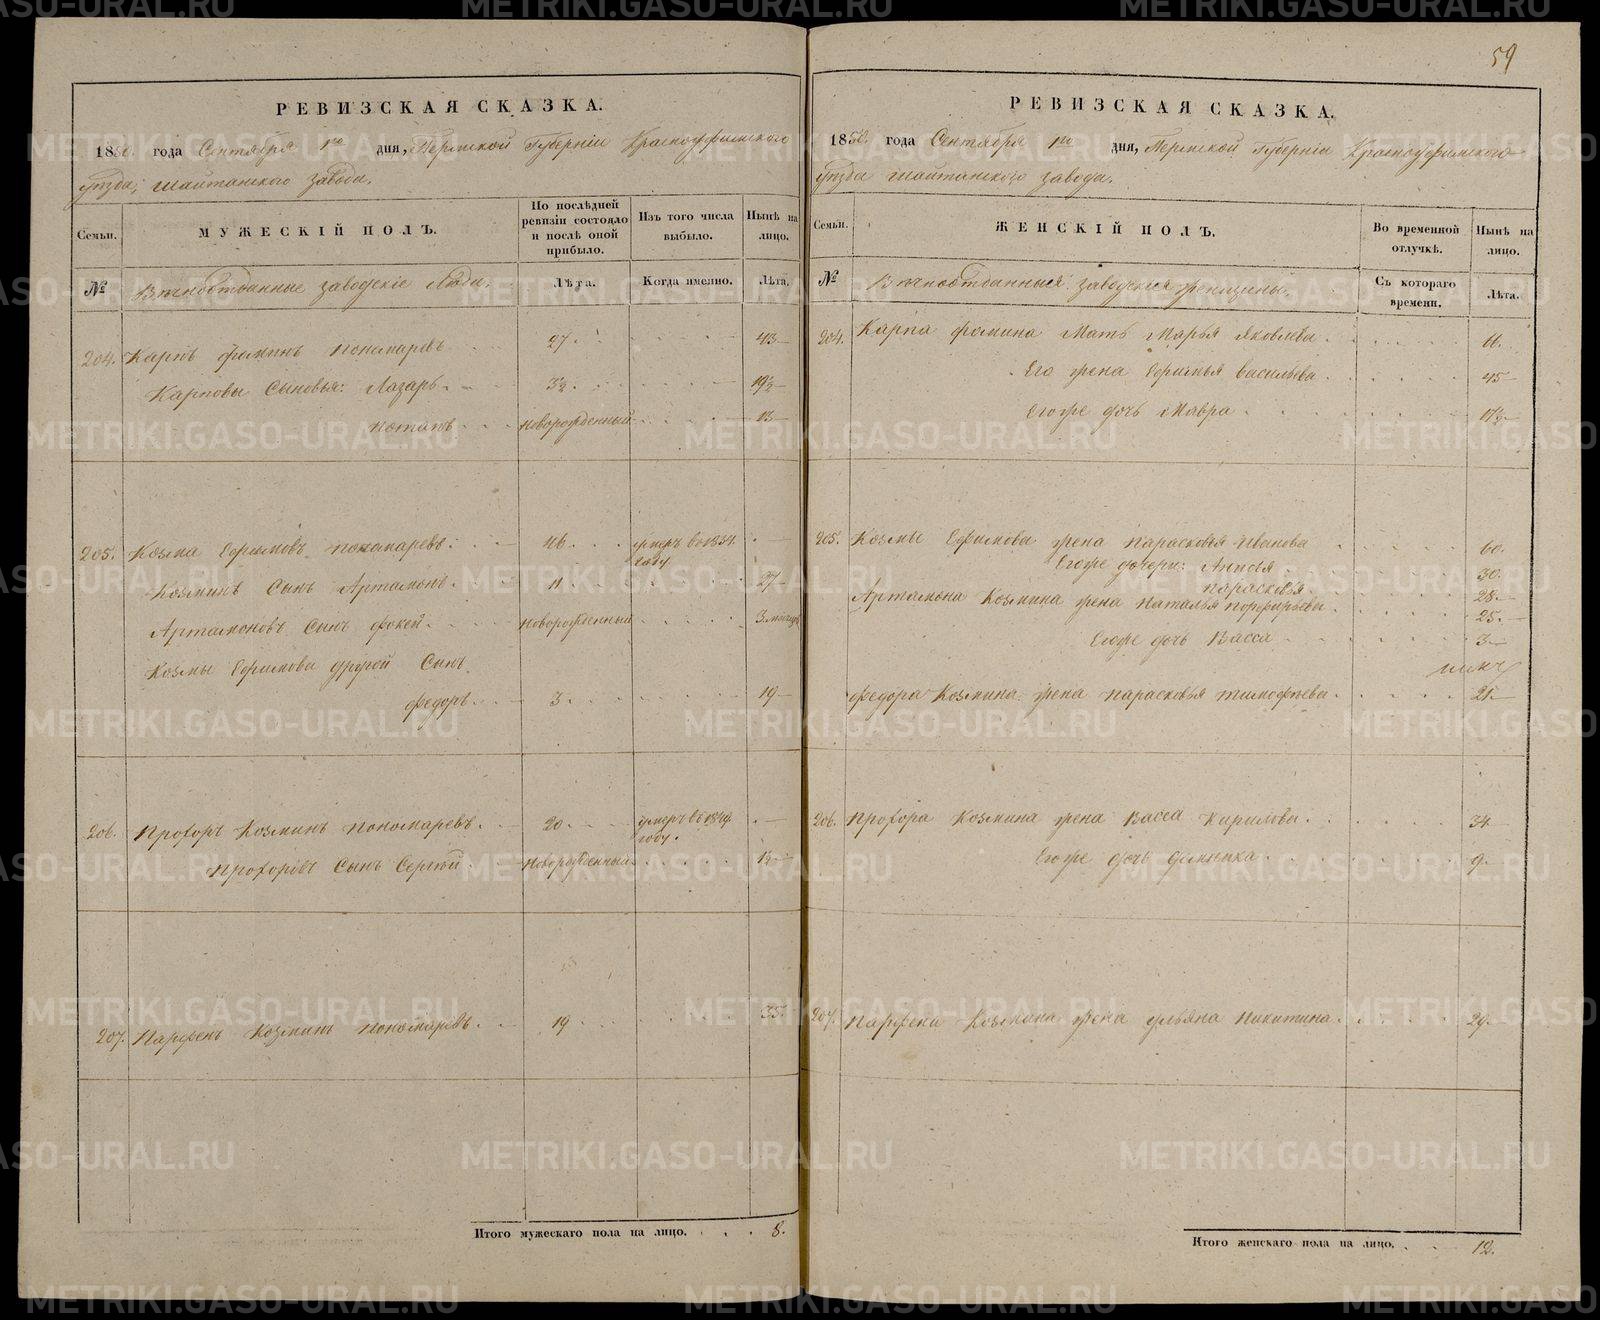 59
РЕВИЗСКАЯ СКАЗКА.
1850. года Сентября 1го дня, Пермской Губерніи Красноуфимского
уѣзда, Шайтанского завода.
Семьи.
МУЖЕСКІЙ ПОЛЪ.
По послѣдней ревизіи состояло и послѣ оной прибыло.
Изъ того числа выбыло.
Нынѣ на лицо.
№
Вѣчноотданные заводскіе Люди.
Лѣта.
Когда именно.
Лѣта.
204. Карпъ Фоминъ Пономаревъ 27. 43
Карповы Сыновья: Лазарь. 3½ 19½
Потапъ Новорожденный 13
205. Козма Ефимовъ Пономаревъ: 46 умеръ въ 1834 году
Козминъ Сынъ Артамонъ. 11 27
Артамоновъ Сынъ Фокей. новорожденный 3 мѣсяцъ
Козмы Ефимова другой Сынъ
Федоръ. 3. 19
206. Прохоръ Козминъ Пономаревъ. 20 умеръ въ 1849 году.
Прохоровъ Сынъ Сергѣй Новорожденный 13
207. Парфенъ Козминъ Пономаревъ. 19 35.
Итого мужескаго пола на лицо. 8.
РЕВИЗСКАЯ СКАЗКА.
1850. года Сентября 1го дня, Пермской Губерніи Красноуфимского
уѣзда Шайтанского завода.
Семьи.
ЖЕНСКІЙ ПОЛЪ.
Во временной отлучкѣ.
Нынѣ на лицо.
№
Вѣчноотданныя заводскія женщины.
Съ котораго времени.
Лѣта.
204. Карпа Фомина Мать Марья Яковлева.
Его жена Ефимья Васильева. 45
Егоже дочь Мавра 17½
205. Козмы Ефимова жена Парасковья Иванова 60.
Егоже дочери: Анисья 30.
Парасковья 28.
Артамона Козмина жена Наталья Порфирьева. 25.
Егоже дочь Васса 3
Федора Козмина жена Парасковья Тимофеева. 21.
206. Прохора Козмина жена Васса Кирилова. 34
Егоже дочь 9.
207. Парфена Козмина жена Ульяна Никитина. 29.
Итого женскаго пола на лицо. 12.
METRIKI.GASO-URAL.RU